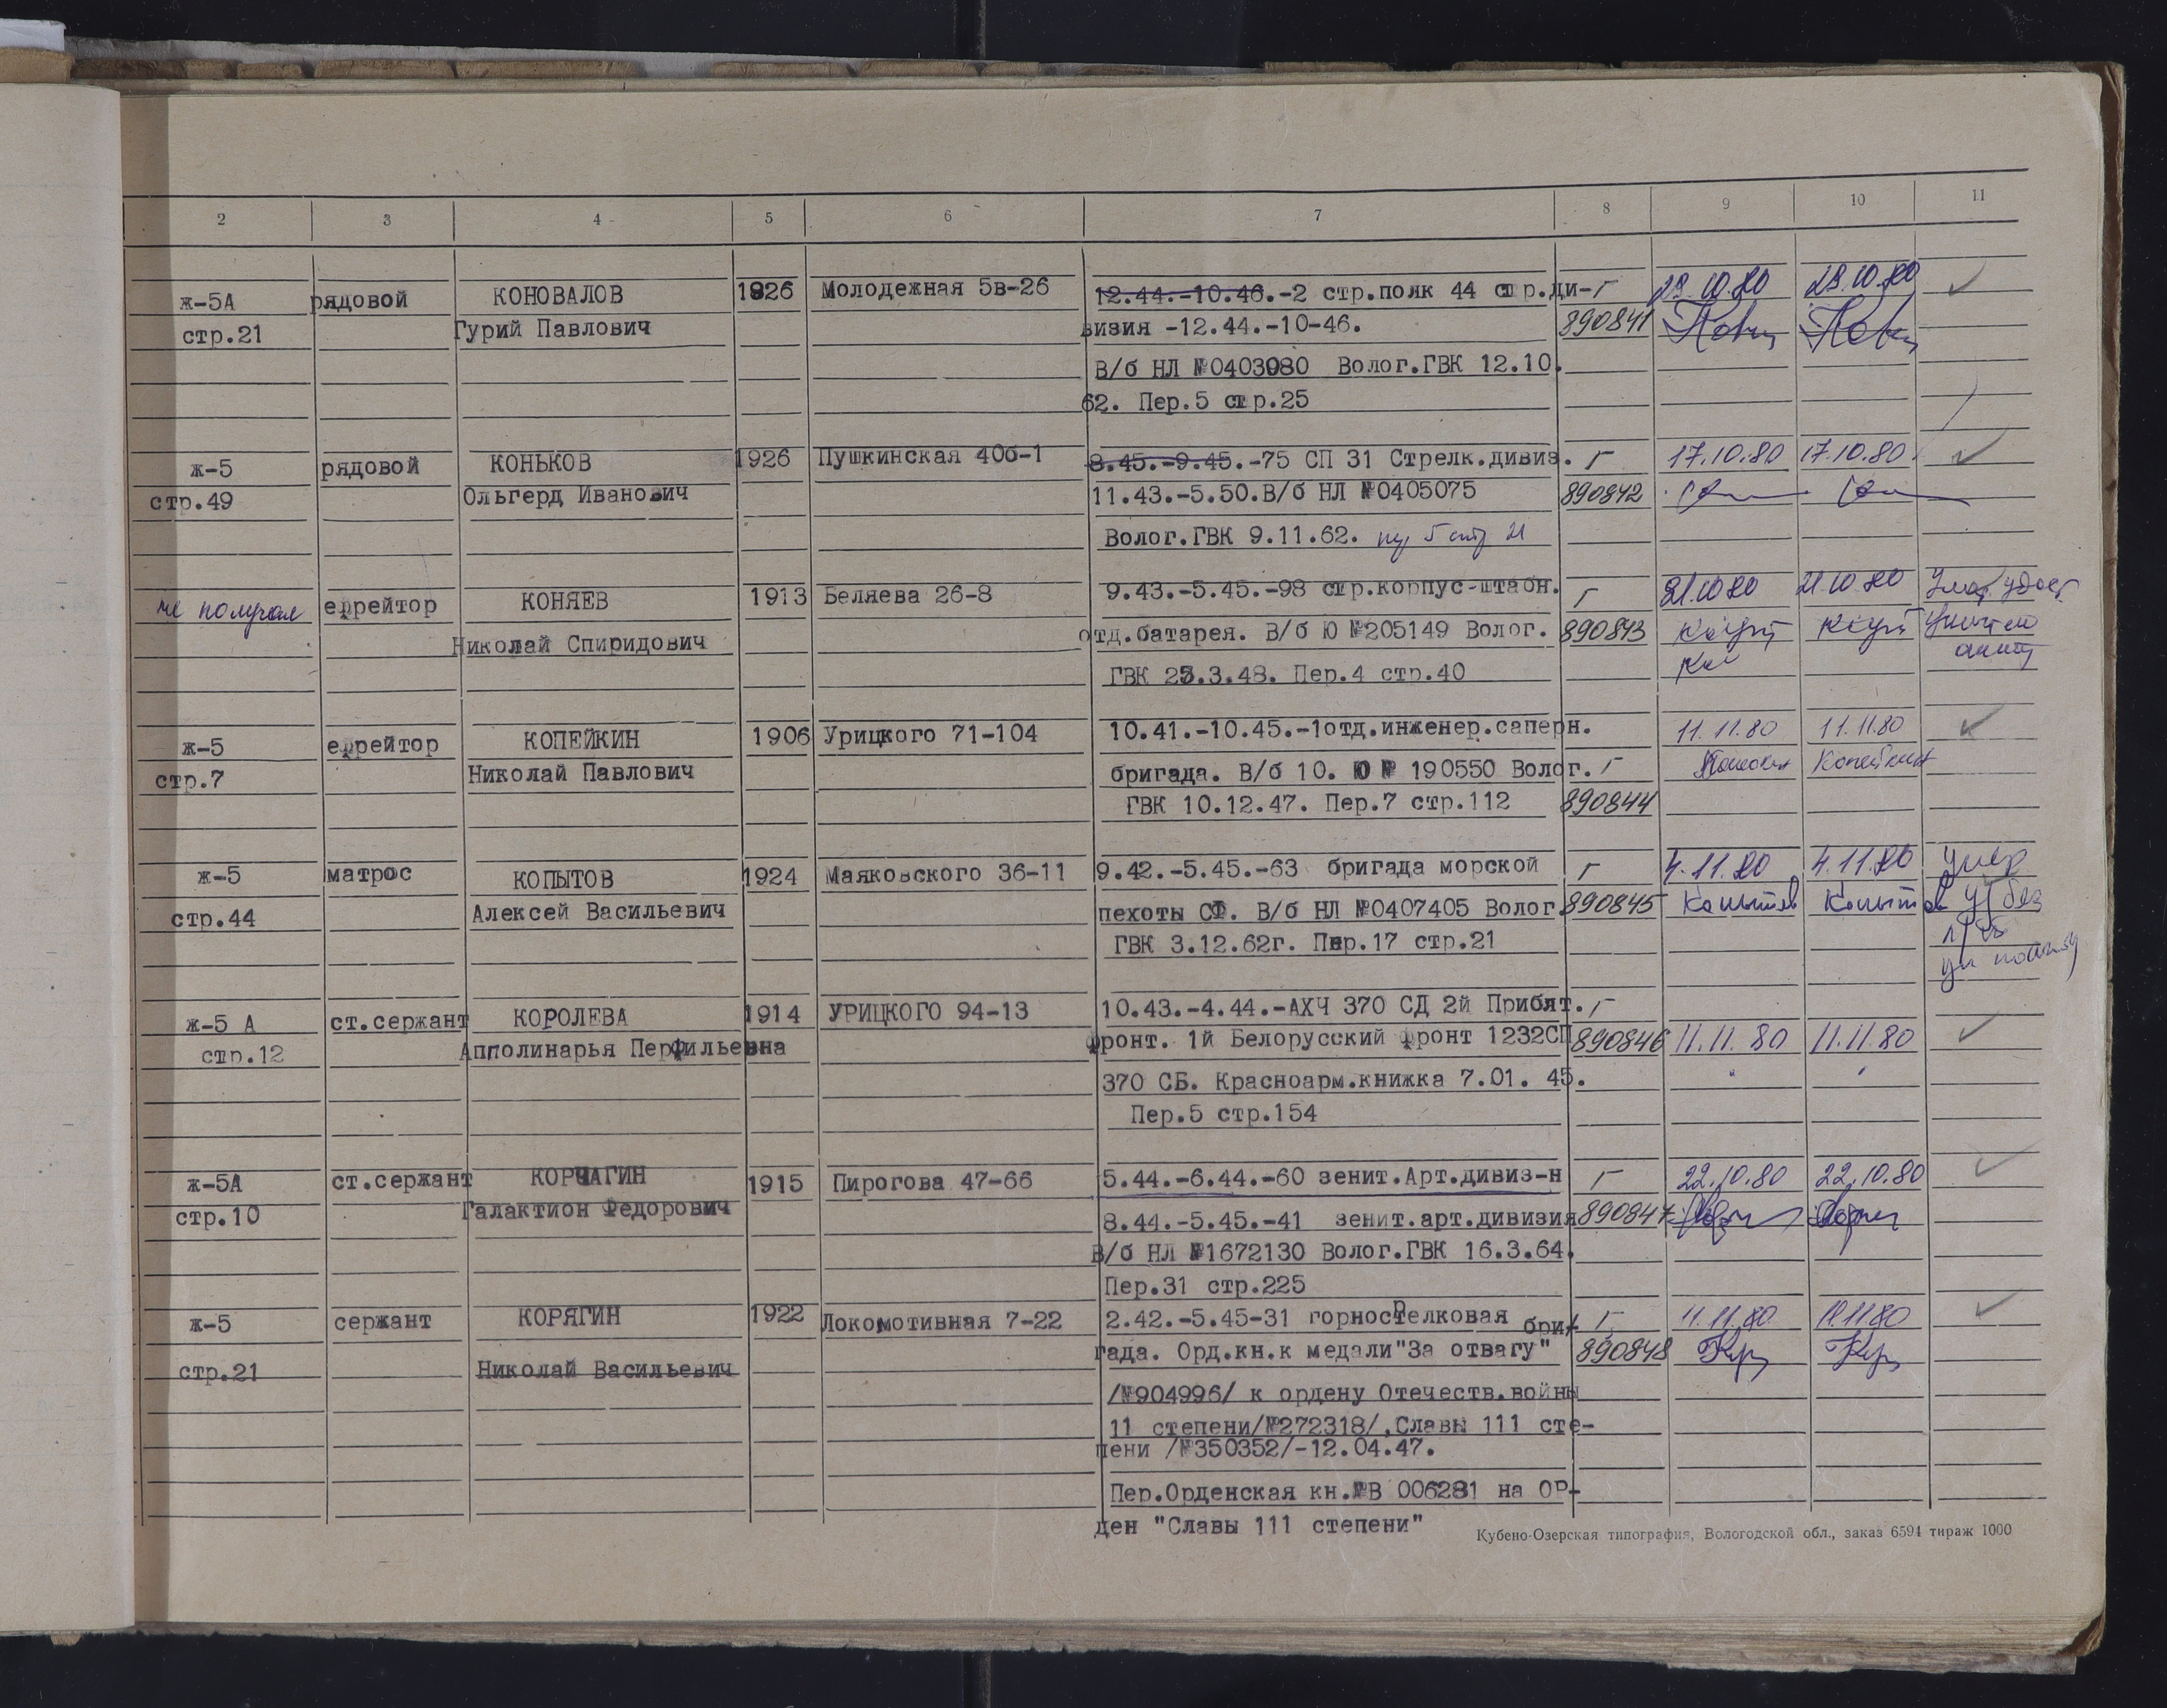 2 3 4 5 6 7 8 9 10 11
ж-5А рядовой КОНОВАЛОВ 1926 Молодежная 5в-26 12.44.-10.46.-2 стр.полк 44 стр.ди- Г 28.10.80 28.10.80
стр.21 Гурий Павлович визия -12.44.-10-46. 890841
В/б НЛ №0403080 Волог.ГВК 12.10.
62. Пер.5 стр.25
ж-5 рядовой КОНЬКОВ 1926 Пушкинская 40б-1 8.45.-9.45.-75 СП 31 Стрелк.дивиз. Г 17.10.80 17.10.80
стр.49 Ольгерд Иванович 11.43.-5.50.В/б НЛ №0405075 890842
Волог.ГВК 9.11.62.
не получал ефрейтор КОНЯЕВ 1913 Беляева 26-8 9.43.-5.45.-98 стр.корпус-штабн. Г 21.10.80 21.10.80
Николай Спиридович отд.батарея. В/б Ю №205149 Волог. 890843
ГВК 25.3.48. Пер.4 стр.40
ж-5 ефрейтор КОПЕЙКИН 1906 Урицкого 71-104 10.41.-10.45.-1отд.инженер.саперн. 11.11.80 11.11.80
стр.7 Николай Павлович бригада. В/б 10. Ю № 190550 Волог. Г Копейкин
ГВК 10.12.47. Пер.7 стр.112 890844
ж-5 матрос КОПЫТОВ 1924 Маяковского 36-11 9.42.-5.45.-63 бригада морской Г 4.11.80 4.11.80 умер
стр.44 Алексей Васильевич пехоты СФ. В/б НЛ №0407405 Волог. 890845 Копытов Копытов
ГВК 3.12.62г. Пер.17 стр.21
ж-5 А ст.сержант КОРОЛЕВА 1914 УРИЦКОГО 94-13 10.43.-4.44.-АХЧ 370 СД 2й Прибалт. Г
стр.12 Апполинарья Перфильевна фронт. 1й Белорусский фронт 1232СП 890846 11.11.80 11.11.80
370 СБ. Красноарм.книжка 7.01. 45.
Пер.5 стр.154
ж-5А ст.сержант КОРЧАГИН 1915 Пирогова 47-66 5.44.-6.44.-60 зенит.Арт.дивиз-н Г 22.10.80 22.10.80
стр.10 Галактион Федорович 8.44.-5.45.-41 зенит.арт.дивизия 890847
В/б НЛ №1672130 Волог.ГВК 16.3.64.
Пер.31 стр.225
ж-5 сержант КОРЯГИН 1922 Локомотивная 7-22 2.42.-5.45-31 горнострелковая бри- Г 11.11.80 11.11.80
стр.21 Николай Васильевич гада. Орд.кн.к медали"За отвагу" 890848
/№904996/ к ордену Отечеств.войны
11 степени/№272318/,Славы 111 сте-
пени /№350352/-12.04.47.
Пер.Орденская кн.№В 006281 на ОР-
ден "Славы 111 степени"
Кубено-Озерская типография, Вологодской обл., заказ 6594 тираж 1000